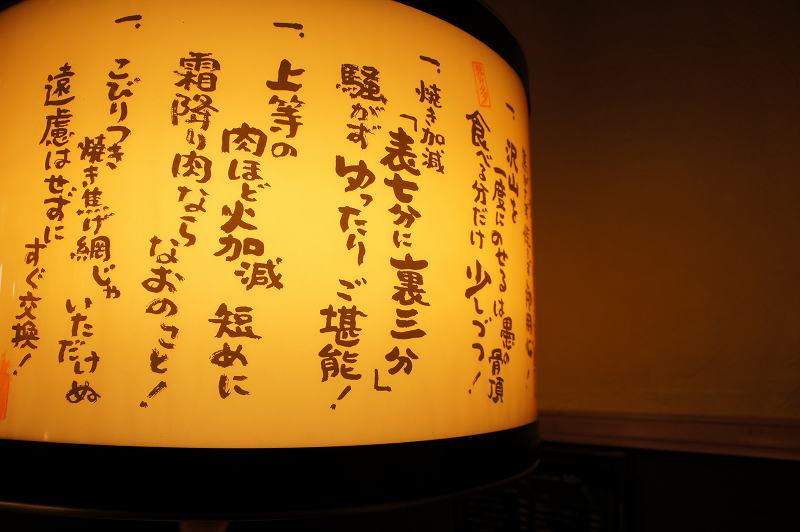 一、沢山を
一度にのせるは 愚の骨頂
食べる分だけ 少しづつ！
一、焼き加減
「表七分に裏三分」
騒がず ゆったり ご堪能！
一、上等の
肉ほど火加減 短めに
霜降り肉なら なおのこと！
一、こびりつき
焼き焦げ網じゃ いただけぬ
遠慮はぜずに すぐ交換！